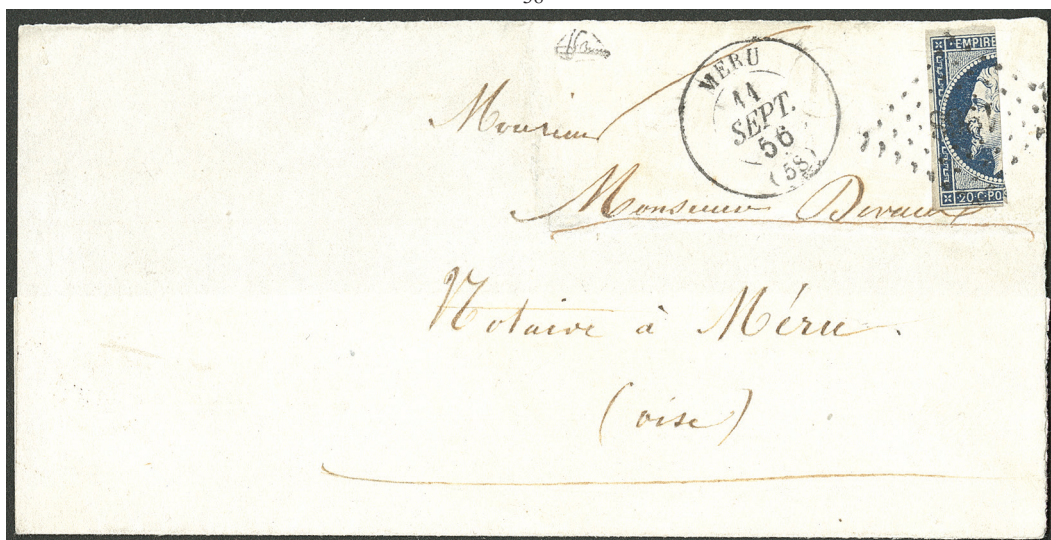 MERU
11
SEPT.
56
(58)
EMPIRE
20·C·PO
Monsieur
Monsieur Devaux
Notaire à Méru.
(oise)